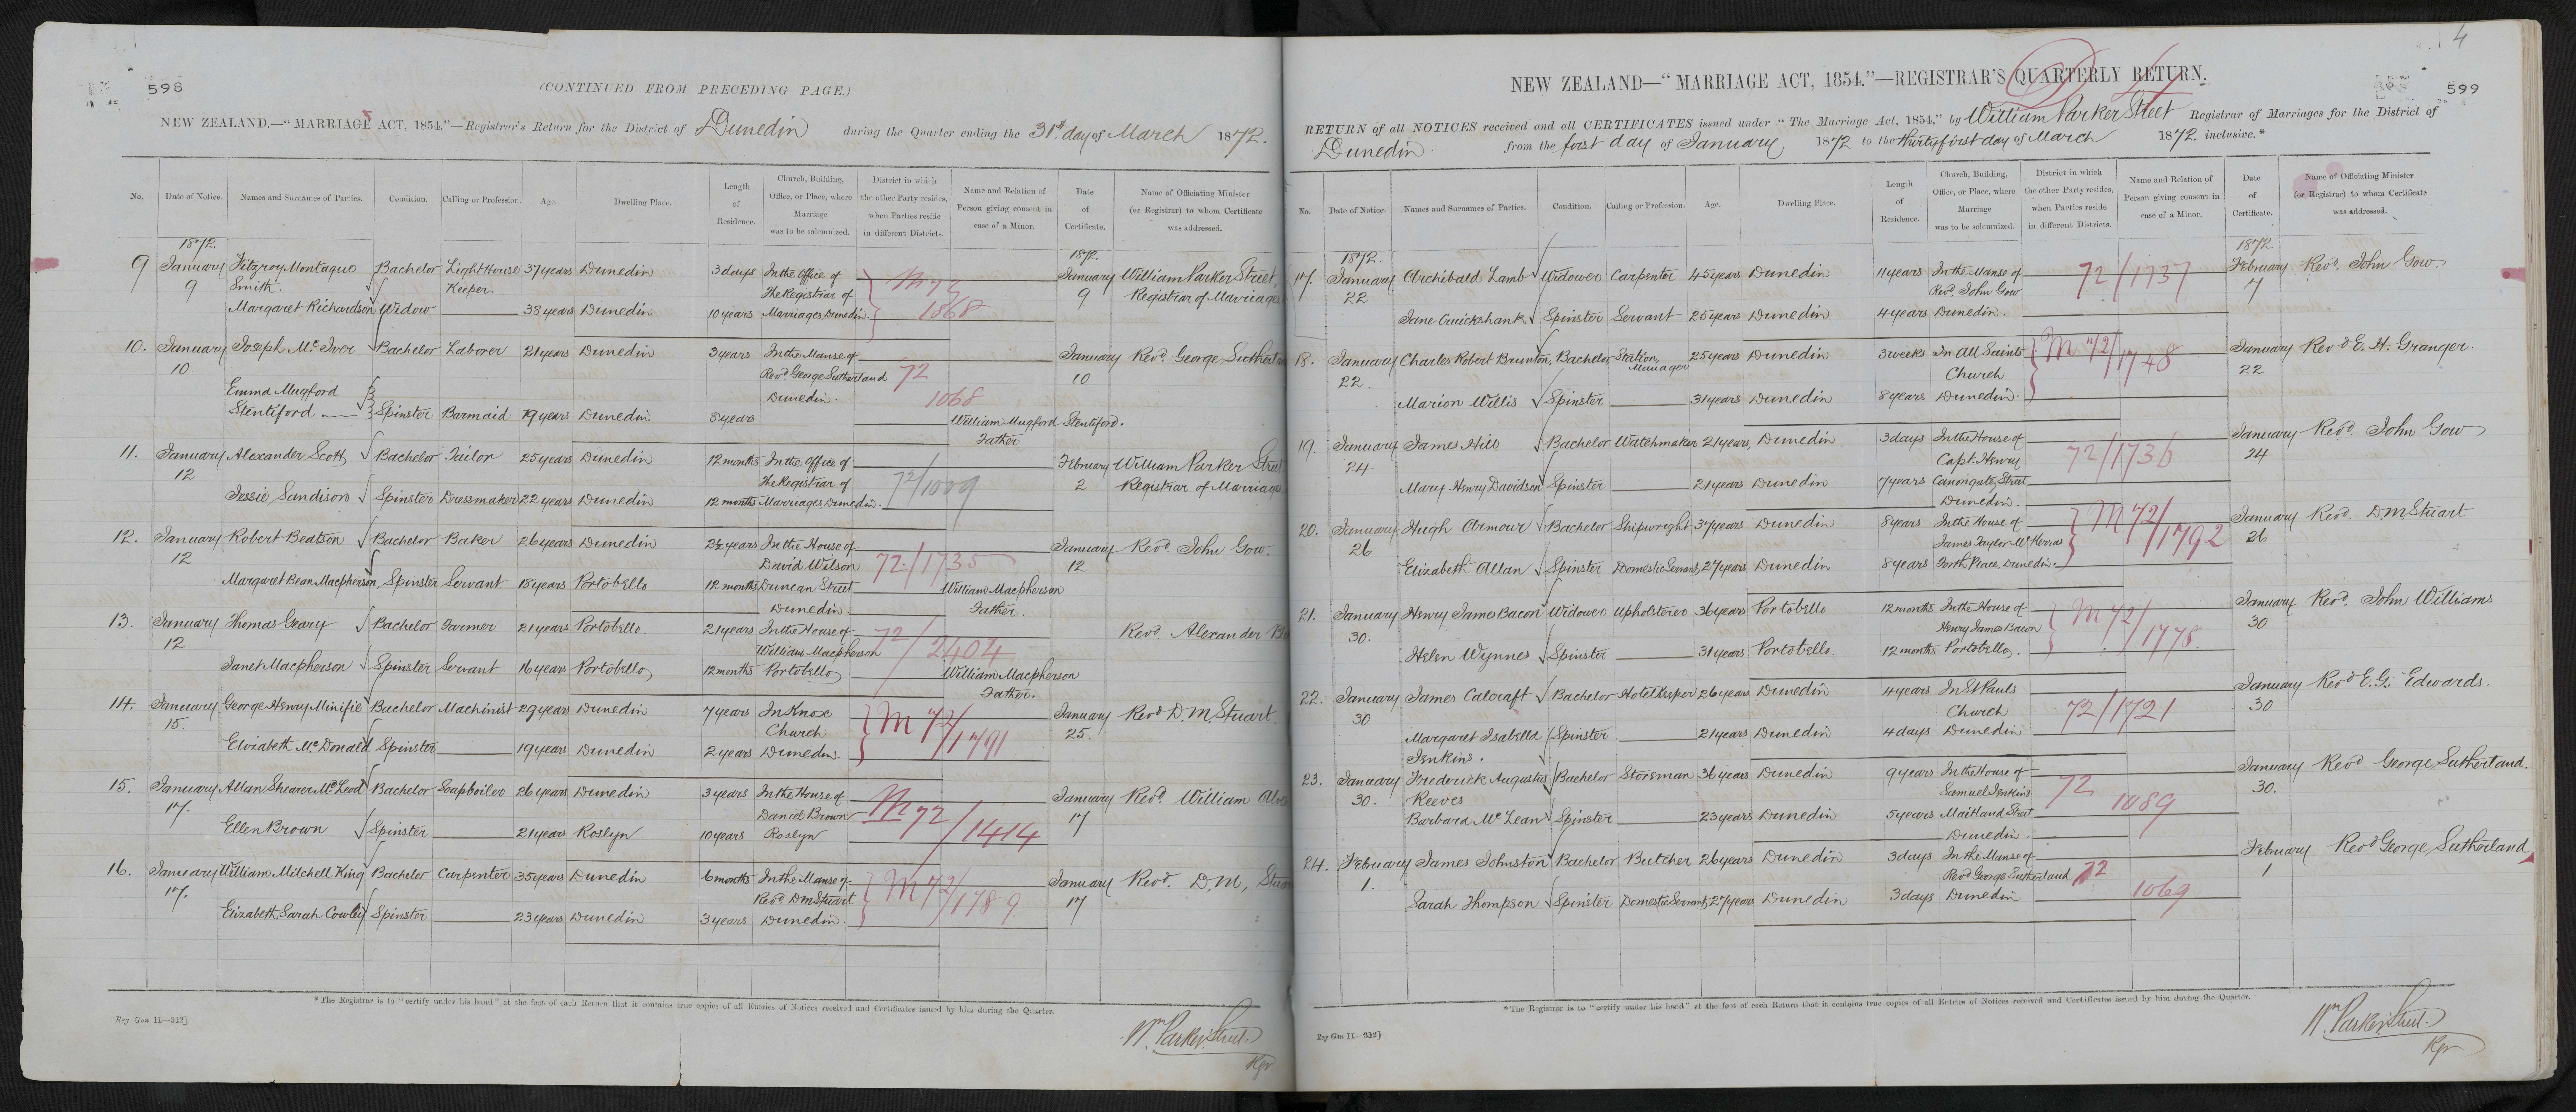 598
(CONTINUED FROM PRECEDING PAGE.)
NEW ZEALAND.—"MARRIAGE ACT, 1854."—Registrar's Return for the District of Dunedin during the Quarter ending the 31st day of March 1872.
No. Date of Notice. Names and Surnames of Parties. Condition. Calling or Profession. Age. Dwelling Place. Length of Residence. Church, Building, Office, or Place, where Marriage was to be solemnized. District in which the other Party resides, when Parties reside in different Districts. Name and Relation of Person giving consent in case of a Minor. Date of Certificate. Name of Officiating Minister (or Registrar) to whom Certificate was addressed.
1872. 1872.
9 January Fitzroy Montague Bachelor Light House 37 years Dunedin 3 days In the Office of M 72 January William Parker Street,
9 Smith. Keeper. The Registrar of 9 Registrar of Marriages
Margaret Richardson Widow 38 years Dunedin 10 years Marriages, Dunedin. 1868
10. January Joseph McIver Bachelor Laborer 21 years Dunedin 3 years In the Manse of January Revd. George Sutherland
10. Revd. George Sutherland 72 10
Emma Mugford Dunedin. 1068
Stentiford Spinster Barmaid 19 years Dunedin 8 years William Mugford Stentiford.
Father
11. January Alexander Scott Bachelor Tailor 25 years Dunedin 12 months In the Office of February William Parker Street
12 The Registrar of 72/1009 2 Registrar of Marriages
Jessie Sandison Spinster Dressmaker 22 years Dunedin 12 months Marriages, Dunedin.
12. January Robert Beatson Bachelor Baker 26 years Dunedin 2½ years In the House of January Revd. John Gow.
12 David Wilson 72/1735 12
Margaret Bean Macpherson Spinster Servant 18 years Portobello 12 months Duncan Street William Macpherson
Dunedin. Father.
13. January Thomas Geary Bachelor Farmer 21 years Portobello. 21 years In the House of Revd. Alexander
12 William Macpherson 72/2404
Janet Macpherson Spinster Servant 16 years Portobello 12 months Portobello William Macpherson
Father.
14. January George Henry Minifie Bachelor Machinist 29 years Dunedin 7 years In Knox M 72/1791 January Revd D. M. Stuart.
15. Church 25.
Elizabeth McDonald Spinster 19 years Dunedin 2 years Dunedin.
15. January Allan Shearer McLeod Bachelor Soapboiler 26 years Dunedin 3 years In the House of M 72/1414 January Revd. William
17. Daniel Brown 17
Ellen Brown Spinster 21 years Roslyn 10 years Roslyn
16. January William Mitchell King Bachelor Carpenter 35 years Dunedin 6 months In the Manse of M 72/1789 January Revd. D. M. Stuart
17. Revd D M Stuart 17
Elizabeth Sarah Cowley Spinster 23 years Dunedin 3 years Dunedin.
*The Registrar is to "certify under his hand" at the foot of each Return that it contains true copies of all Entries of Notices received and Certificates issued by him during the Quarter.
Reg Gen 11—312]
Wm. Parker Street.
Rgr
4
599
NEW ZEALAND—"MARRIAGE ACT, 1854."—REGISTRAR'S QUARTERLY RETURN.
RETURN of all NOTICES received and all CERTIFICATES issued under "The Marriage Act, 1854," by William Parker Street Registrar of Marriages for the District of
Dunedin. from the first day of January 1872 to the thirty first day of March 1872. inclusive.*
No. Date of Notice. Names and Surnames of Parties. Condition. Calling or Profession. Age. Dwelling Place. Length of Residence. Church, Building, Office, or Place, where Marriage was to be solemnized. District in which the other Party resides, when Parties reside in different Districts. Name and Relation of Person giving consent in case of a Minor. Date of Certificate. Name of Officiating Minister (or Registrar) to whom Certificate was addressed.
1872. 1872.
17. January Archibald Lamb Widower Carpenter 45 years Dunedin 11 years In the Manse of 72/1737 February Revd. John Gow
22 Revd. John Gow 7
Jane Cruickshank Spinster Servant 25 years Dunedin 4 years Dunedin.
18. January Charles Robert Brunton Bachelor Station 25 years Dunedin 3 weeks In All Saints M 72/1748 January Revd E. H. Granger.
22. Manager Church 22
Marion Willis Spinster 31 years Dunedin 8 years Dunedin.
19. January James Hill Bachelor Watchmaker 21 years Dunedin 3 days In the House of January Revd. John Gow
24 Capt. Henry 72/1736 24
Mary Henry Davidson Spinster 21 years Dunedin 7 years Canongate Street
Dunedin.
20. January Hugh Armour Bachelor Shipwright 37 years Dunedin 8 years In the House of M 72/1792 January Revd D. M. Stuart
26 James Taylor McKerras 26
Elizabeth Allan Spinster Domestic Servant 27 years Dunedin 8 years Forth Place, Dunedin.
21. January Henry James Bacon Widower Upholsterer 36 years Portobello 12 months In the House of M 72/1778. January Revd. John Williams
30. Henry James Bacon 30
Helen Wynnes Spinster 31 years Portobello. 12 months Portobello.
22. January James Calcraft Bachelor Hotel Keeper 26 years Dunedin 4 years In St Pauls 72/1721 January Revd E. G. Edwards.
30 Church 30
Margaret Isabella Spinster 21 years Dunedin 4 days Dunedin
Jenkins.
23. January Frederick Augustus Bachelor Storeman 36 years Dunedin 9 years In the House of January Revd George Sutherland.
30. Reeves Samuel Jenkins 72 30.
Barbara McLean Spinster 23 years Dunedin 5 years Maitland Street 1089
Dunedin.
24. February James Johnston Bachelor Butcher 26 years Dunedin 3 days In the Manse of February Revd George Sutherland
1. Revd. George Sutherland 72 1
Sarah Thompson Spinster Domestic Servant 27 years Dunedin 3 days Dunedin 1069
*The Registrar is to "certify under his hand" at the foot of each Return that it contains true copies of all Entries of Notices received and Certificates issued by him during the Quarter.
Reg Gen 11—312]
Wm. Parker Street.
Rgr